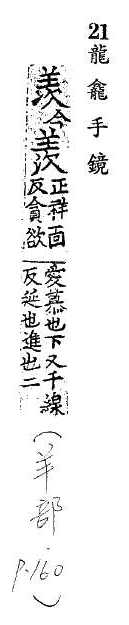 21 龍龕手鏡
羨今羡正祥面
反貪欲
愛慕也下又千線
反延也進也二
(羊部
p.160)